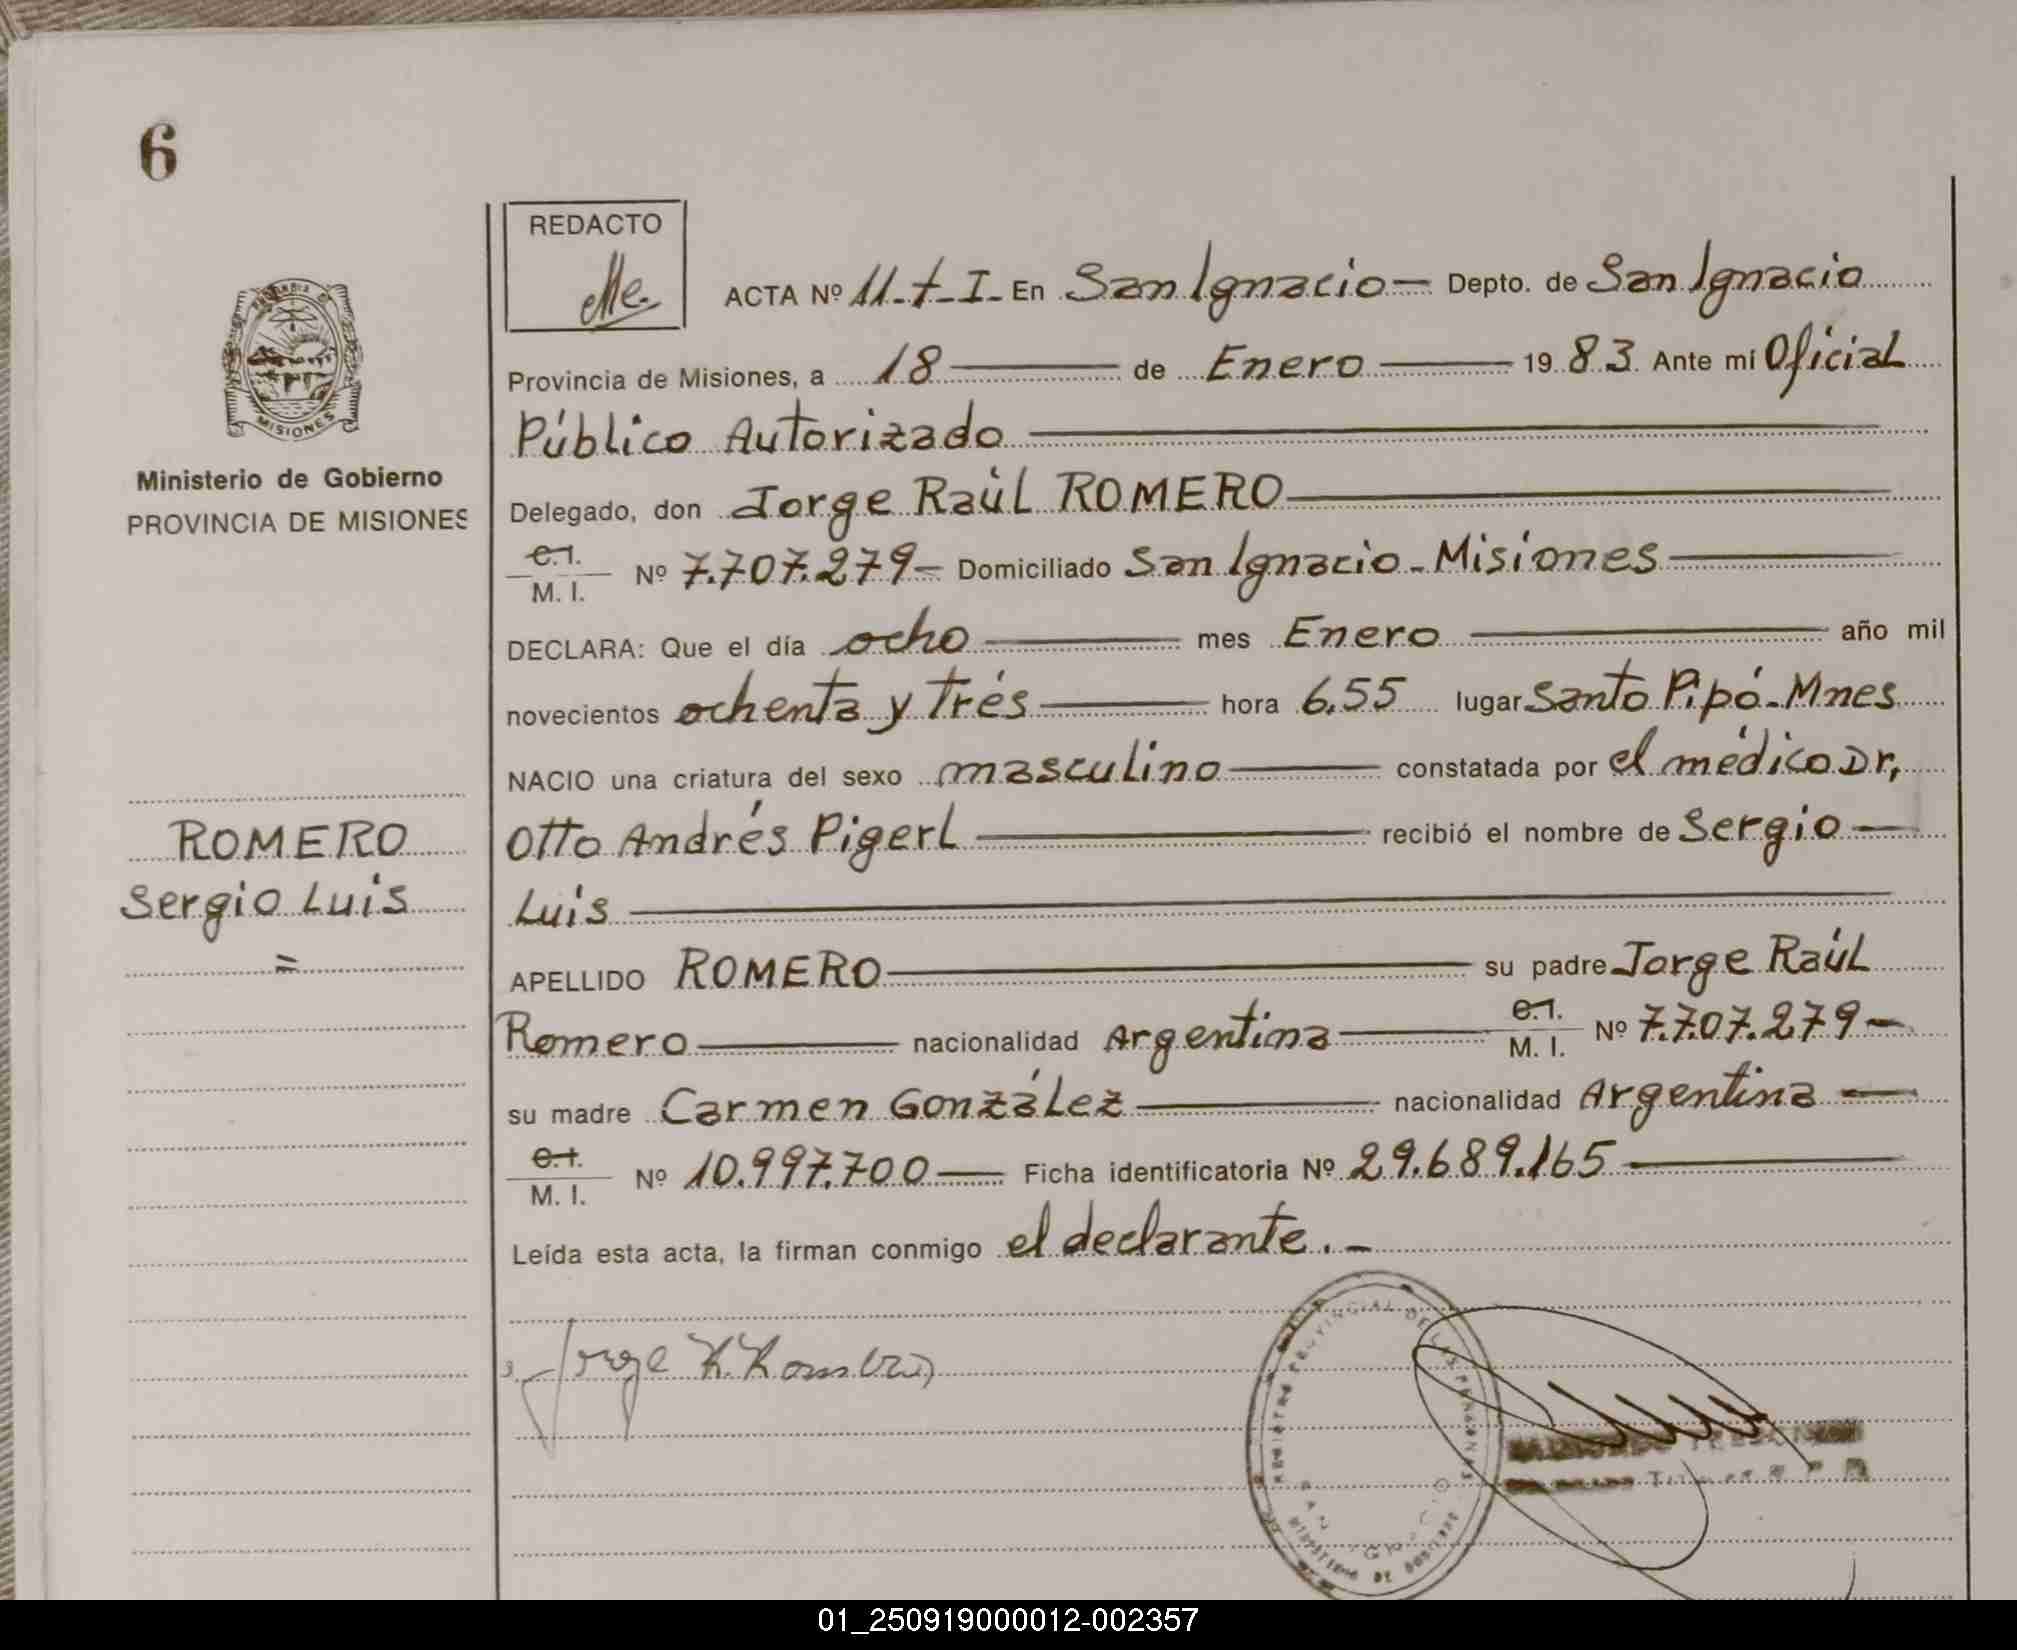 6
REDACTO
ACTA Nº 11-t-I- En San Ignacio — Depto. de San Ignacio
Provincia de Misiones, a 18 — de Enero — 1983. Ante mi Oficial
Público Autorizado —
Delegado, don Jorge Raúl ROMERO —
e.i. / M. I. Nº 7.707.279- Domiciliado San Ignacio - Misiones —
DECLARA: Que el día ocho — mes Enero — año mil
novecientos ochenta y trés — hora 6,55 lugar Santo Pipó - Mnes
NACIO una criatura del sexo masculino — constatada por el médico Dr,
Otto Andrés Pigerl — recibió el nombre de Sergio —
Luis —
APELLIDO ROMERO — su padre Jorge Raúl
Romero — nacionalidad Argentina — e.i. / M. I. Nº 7.707.279 -
su madre Carmen González — nacionalidad Argentina —
e.i. / M. I. Nº 10.997.700 — Ficha identificatoria Nº 29.689.165 —
Leída esta acta, la firman conmigo el declarante. -
Jorge R. Romero
MISIONES
Ministerio de Gobierno
PROVINCIA DE MISIONES
ROMERO
Sergio Luis
=
REGISTRO PROVINCIAL DE LAS PERSONAS
SAN IGNACIO
MINISTERIO DE GOBIERNO
01_250919000012-002357